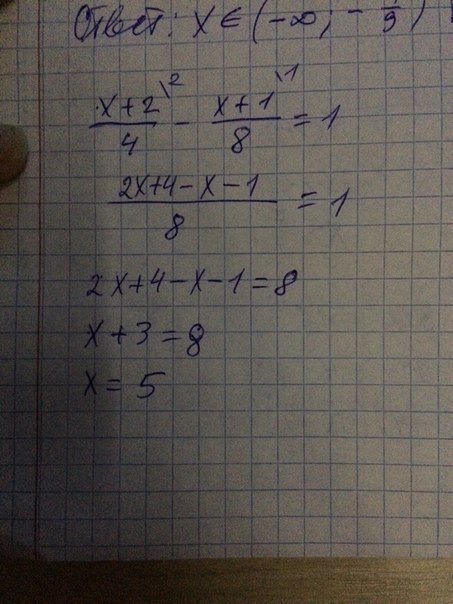 Ответ: x ∈ (-∞; -
x+2\2 / 4 - x+1\1 / 8 = 1
2x+4-x-1 / 8 = 1
2x+4-x-1=8
x+3=8
x=5